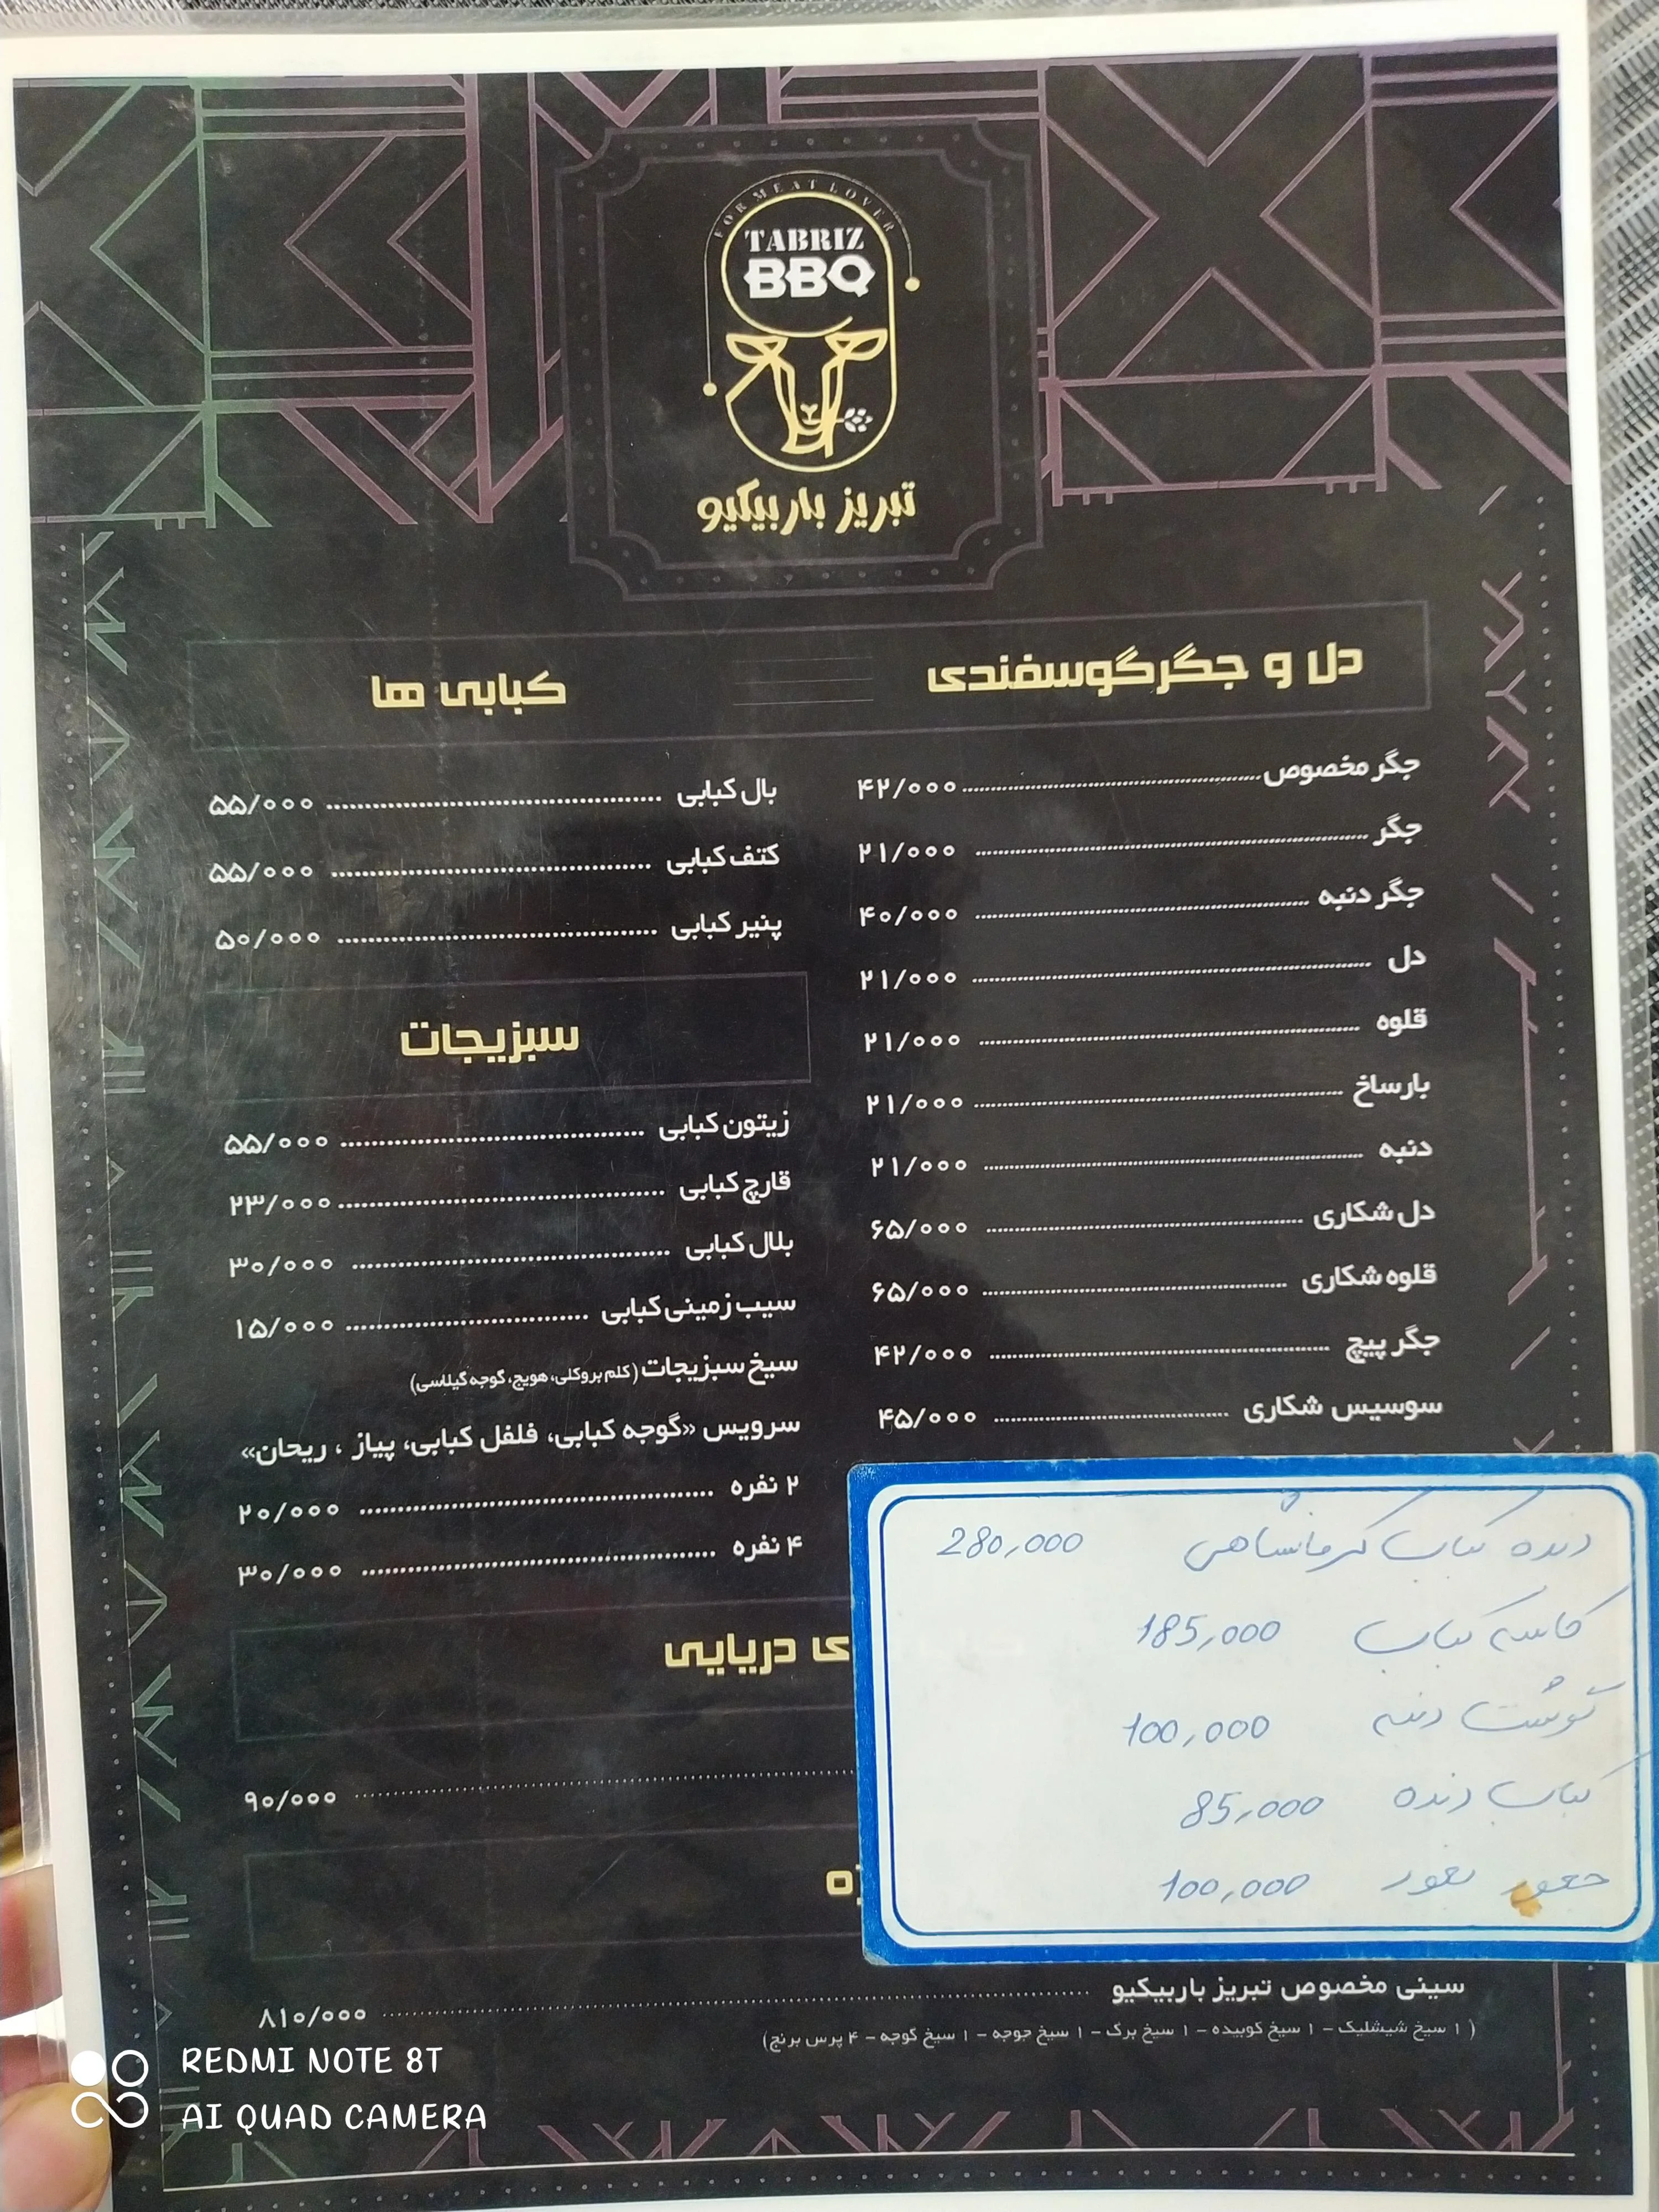 FOR MEAT LOVER
TABRIZ
BBQ
تبریز باربیکیو
دل و جگرگوسفندی
جگر مخصوص ۴۲/۰۰۰
جگر ۲۱/۰۰۰
جگر دنبه ۴۰/۰۰۰
دل ۲۱/۰۰۰
قلوه ۲۱/۰۰۰
بارساخ ۲۱/۰۰۰
دنبه ۲۱/۰۰۰
دل شکاری ۶۵/۰۰۰
قلوه شکاری ۶۵/۰۰۰
جگر پیچ ۴۲/۰۰۰
سوسیس شکاری ۴۵/۰۰۰
کبابی ها
بال کبابی ۵۵/۰۰۰
کتف کبابی ۵۵/۰۰۰
پنیر کبابی ۵۰/۰۰۰
سبزیجات
زیتون کبابی ۵۵/۰۰۰
قارچ کبابی ۲۳/۰۰۰
بلال کبابی ۳۰/۰۰۰
سیب زمینی کبابی ۱۵/۰۰۰
سیخ سبزیجات (کلم بروکلی، هویج، گوجه گیلاسی)
سرویس «گوجه کبابی، فلفل کبابی، پیاز ، ریحان»
۲ نفره ۲۰/۰۰۰
۴ نفره ۳۰/۰۰۰
دنده کباب کرمانشاهی 280,000
کاسه کباب 185,000
گوشت دنبه 100,000
کباب دنده 85,000
100,000
ی دریایی
۹۰/۰۰۰
سینی مخصوص تبریز باربیکیو ۸۱۰/۰۰۰
( ۱ سیخ شیشلیک – ۱ سیخ کوبیده – ۱ سیخ برگ – ۱ سیخ جوجه – ۱ سیخ گوجه – ۴ پرس برنج)
REDMI NOTE 8T
AI QUAD CAMERA